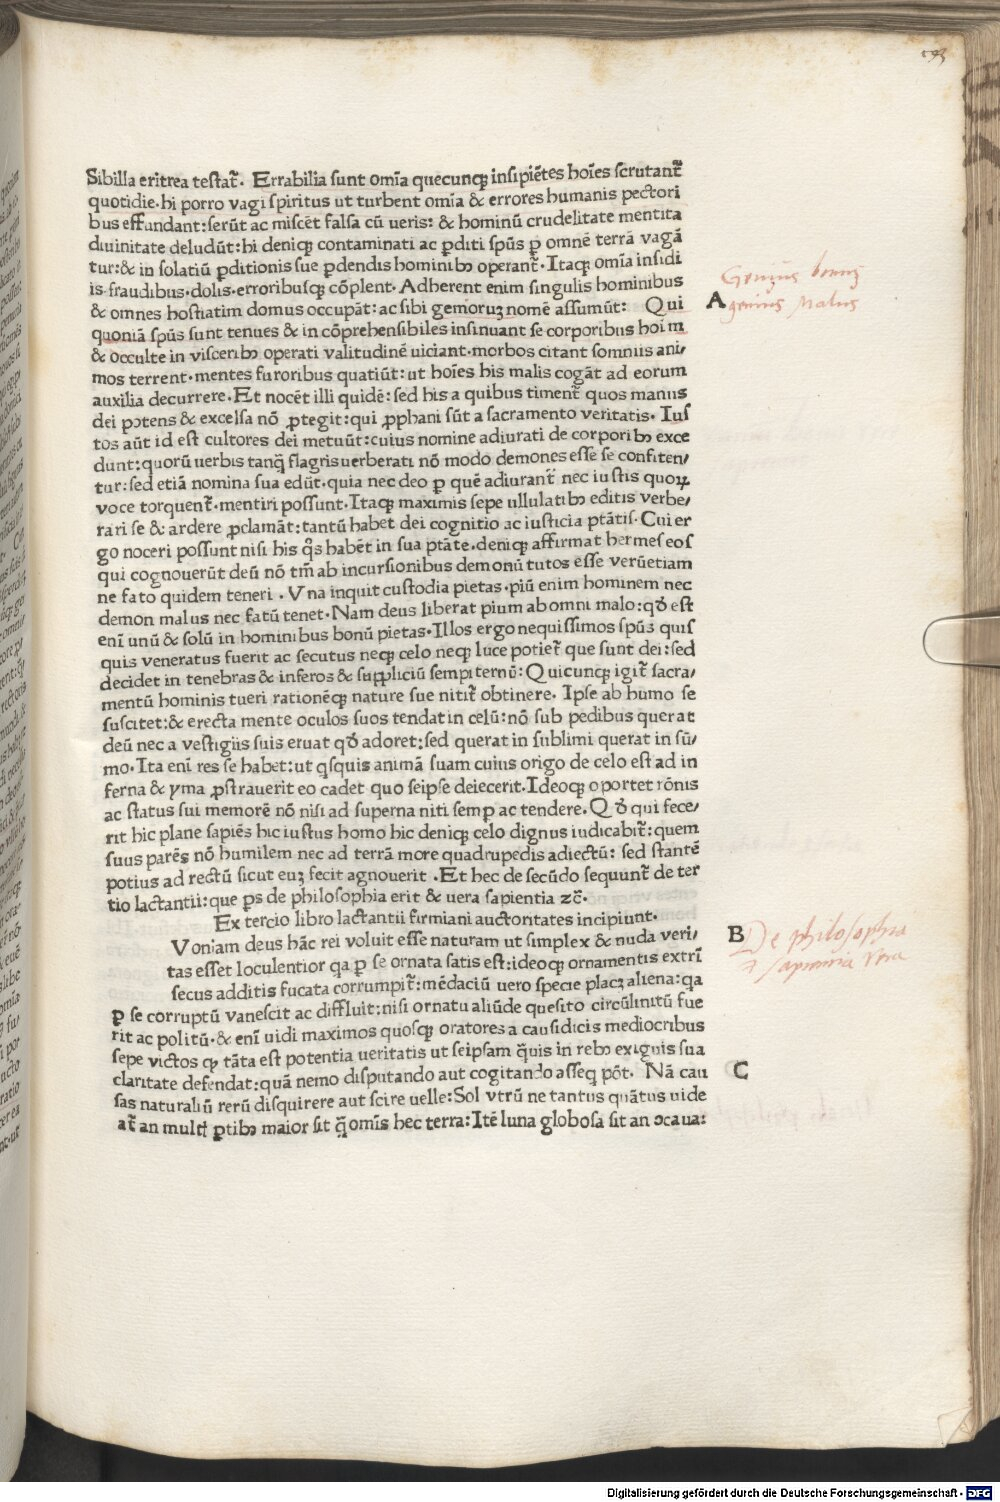 Sibilla eritrea testat᷑. Errabilia sunt omīa quecunqꝫ insipiētes hoīes scrutant᷑
quotidie. hi porro vagi spiritus ut turbent omīa & errores humanis pectori
bus effundant: serūt ac miscēt falsa cū ueris: & hominū crudelitate mentita
diuinitate deludūt: hi deniqꝫ contaminati ac ꝑditi spūs ꝑ omnē terrā vagā
tur: & in solatiū ꝑditionis sue ꝑdendis hominibꝫ operant᷑. Itaqꝫ omīa insidi
is. fraudibus. dolis. erroribusqꝫ cōplent. Adherent enim singulis hominibus
& omnes hostiatim domus occupāt: ac sibi gemoruꝫ nomē assumūt: Qui
quoniā spūs sunt tenues & in cōprehensibiles insinuant se corporibus hoim
& occulte in visceribꝫ operati valitudinē uiciant. morbos citant somniis ani/
mos terrent. mentes furoribus quatiūt: ut hoīes his malis cogāt ad eorum
auxilia decurrere. Et nocēt illi quidē: sed his a quibus timent᷑ quos manus
dei potens & excelsa nō ꝓtegit: qui ꝓphani sūt a sacramento veritatis. Ius
tos aūt id est cultores dei metuūt: cuius nomine adiurati de corporibꝫ exce
dunt: quorū uerbis tanq̄ flagris uerberati nō modo demones esse se confiten/
tur: sed etiā nomina sua edūt. quia nec deo ꝑ quē adiurant᷑ nec iustis quoꝝ
voce torquent᷑. mentiri possunt. Itaqꝫ maximis sepe ullulatibꝫ editis verbe/
rari se & ardere ꝓclamāt: tantū habet dei cognitio ac iusticia ptātis. Cui er
go noceri possunt nisi his q̄s habēt in sua ptāte. deniqꝫ affirmat hermes eos
qui cognouerūt deū nō tm̄ ab incursionibus demonū tutos esse verūetiam
ne fato quidem teneri. Vna inquit custodia pietas. piū enim hominem nec
demon malus nec fatū tenet. Nam deus liberat pium ab omni malo: qđ est
enī unū & solū in hominibus bonū pietas. Illos ergo nequissimos spūꝫ quis
quis veneratus fuerit ac secutus neqꝫ celo neqꝫ luce potiet᷑ que sunt dei: sed
decidet in tenebras & inferos & suppliciū sempiternū: Quicunqꝫ igit᷑ sacra/
mentū hominis tueri rationēqꝫ nature sue nitit᷑ obtinere. Ipse ab humo se
suscitet: & erecta mente oculos suos tendat in celū: nō sub pedibus querat
deū nec a vestigiis suis eruat qđ adoret: sed querat in sublimi querat in sū/
mo. Ita enī res se habet: ut qsquis animā suam cuius origo de celo est ad in
ferna & yma ꝓstrauerit eo cadet quo seipse deiecerit. Ideoqꝫ oportet rōnis
ac status sui memorē nō nisi ad superna niti semꝑ ac tendere. Qđ qui fece/
rit hic plane sapiēs hic iustus homo hic deniqꝫ celo dignus iudicabit᷑: quem
suus parēs nō humilem nec ad terrā more quadrupedis adiectū: sed stantē
potius ad rectū sicut euꝫ fecit agnouerit. Et hec de secūdo sequunt᷑ de ter
tio lactantii: que ꝑs de philosophia erit & uera sapientia ⁊c̄.
Ex tercio libro lactantii firmiani auctoritates incipiunt.
Voniam deus hāc rei voluit esse naturam ut simplex & nuda veri/
tas esset loculentior qa ꝑ se ornata satis est: ideoqꝫ ornamentis extrī
secus additis fucata corrumpit᷑: mēdaciū uero specie placꝫ aliena: qa
ꝑ se corruptū vanescit ac diffluit: nisi ornatu aliūde quesito circūlinitū fue
rit ac politū. & enī uidi maximos quosqꝫ oratores a causidicis mediocribus
sepe victos qꝫ tāta est potentia ueritatis ut seipsam q̄uis in rebꝫ exiguis sua
claritate defendat: quā nemo disputando aut cogitando asseq̄ pōt. Nā cau
sas naturaliū rerū disquirere aut scire uelle: Sol vtrū ne tantus quātus uide
at᷑ an multꝭ ꝑtibꝫ maior sit q̄ omīs hec terra: Itē luna globosa sit an ↄcaua:
Genius bonus
A genius Malus
B De philosophia
⁊ sapientia Vera
C